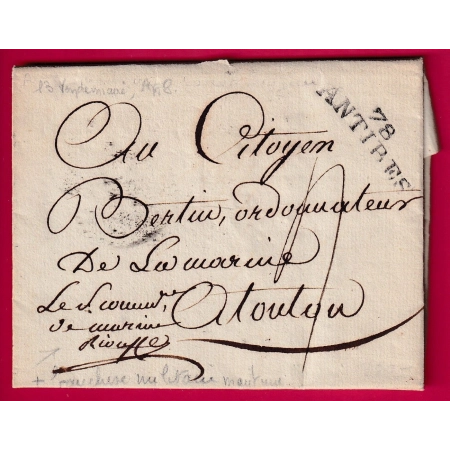 13 Vendémiaire, An 8.
78
ANTIBES
Au Citoyen
Bertin, ordonnateur
De La marine
Le s. comm.re
de marine
Atoulon
+ franchise militaire maritime